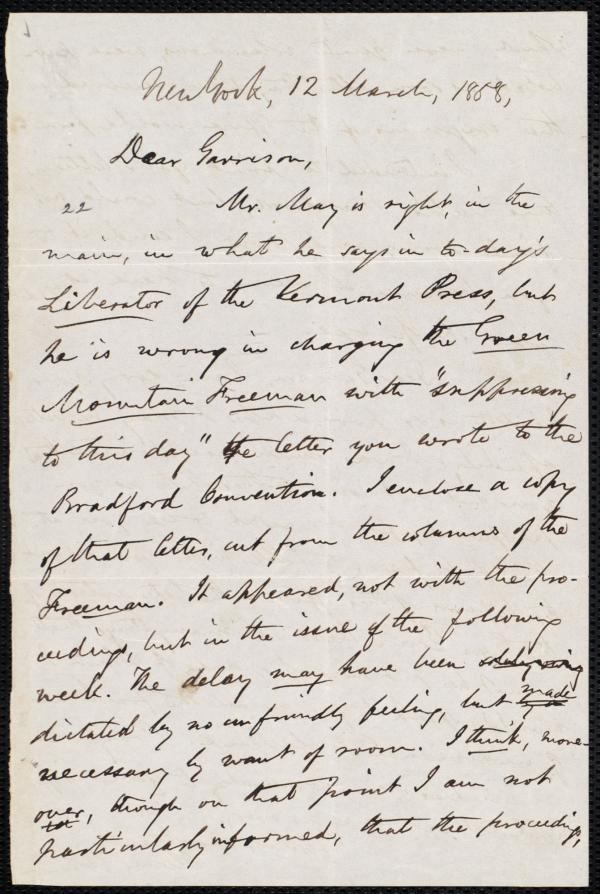 New York, 12 March, 1858,
Dear Garrison,
22 Mr. May is right, in the
main, in what he says in to-day's
Liberator of the Vermont Press, but
he is wrong in charging the Green
Mountain Freeman with "suppressing
to this day" the letter you wrote to the
Bradford Convention. I enclose a copy
of that letter, cut from the columns of the
Freeman. It appeared, not with the pro-
ceedings, but in the issue of the following
week. The delay may have been
dictated by no unfriendly feeling, but made
necessary by want of room. I think, more-
over, though on that point I am not
particularly informed, that the proceedings,